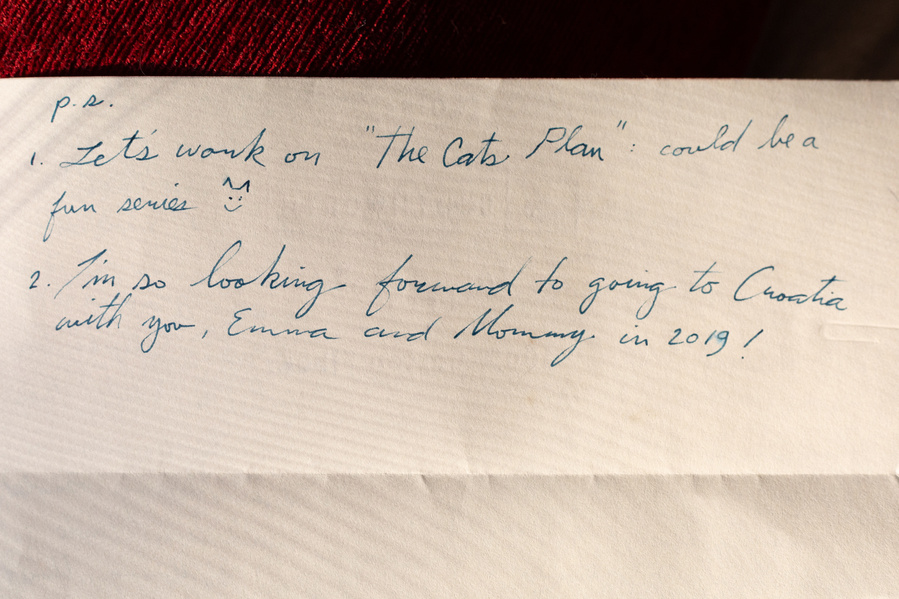 p.s.
1. Let's work on "The Cats Plan": could be a
fun series
2. I'm so looking forward to going to Croatia
with you, Emma and Mommy in 2019!